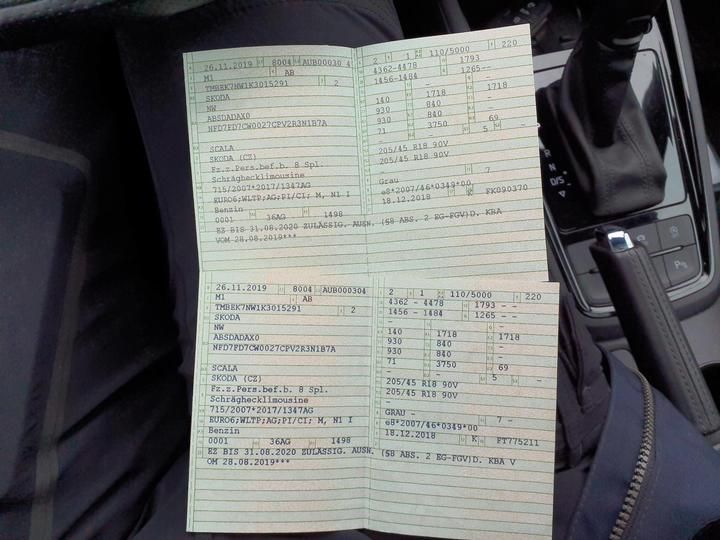 26.11.2019 8004 AUB00030 4
M1 AB
TMBEK7NW1K3015291 2
SKODA
NW
ABSDADAX0
NFD7FD7CW0027CPV2R3N1B7A
SCALA
SKODA (CZ)
Fz.z.Pers.bef.b. 8 Spl.
Schräghecklimousine
715/2007*2017/1347AG
EURO6;WLTP;AG;PI/CI; M, N1 I
Benzin
0001 36AG 1498
EZ BIS 31.08.2020 ZULÄSSIG. AUSN. (§8 ABS. 2 EG-FGV)D. KBA
VOM 28.08.2019***
2 1 110/5000 220
4362-4478 1793
1456-1484 1265--
- -
140 1718 1718
930 840 -
930 840 -
71 3750 69
- 5 -
205/45 R18 90V
205/45 R18 90V
-
Grau 7
e8*2007/46*0349*00
18.12.2018 K FK090370
26.11.2019 8004 AUB000304
M1 AB
TMBEK7NW1K3015291 2
SKODA
NW
ABSDADAX0
NFD7FD7CW0027CPV2R3N1B7A
SCALA
SKODA (CZ)
Fz.z.Pers.bef.b. 8 Spl.
Schräghecklimousine
715/2007*2017/1347AG
EURO6;WLTP;AG;PI/CI; M, N1 I
Benzin
0001 36AG 1498
EZ BIS 31.08.2020 ZULÄSSIG. AUSN. (§8 ABS. 2 EG-FGV)D. KBA V
OM 28.08.2019***
2 1 110/5000 220
4362 - 4478 1793 -
1456 - 1484 1265 -
- -
140 1718 1718
930 840 -
930 840 -
71 3750 69
- 5 -
205/45 R18 90V
205/45 R18 90V
-
GRAU - 7 -
e8*2007/46*0349*00
18.12.2018 K FT775211
R
N
D/S
P